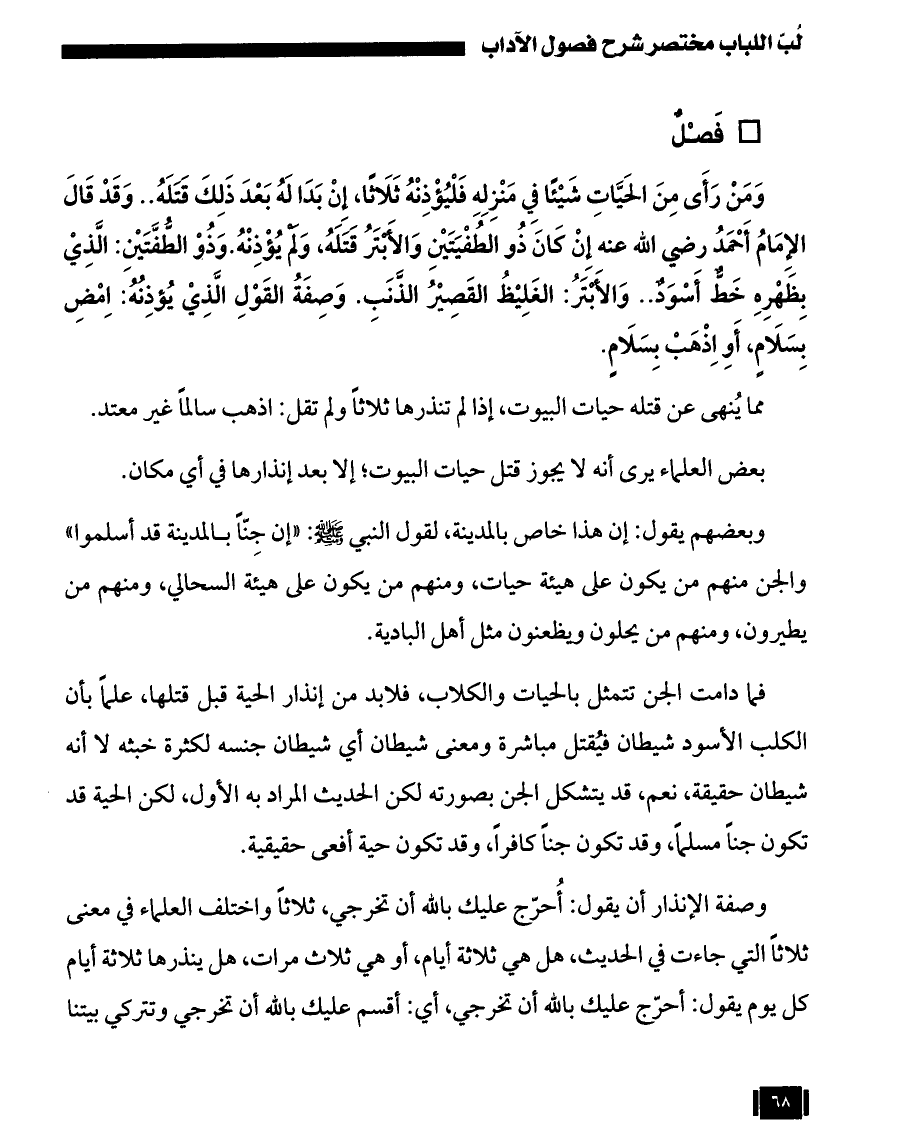 لُبّ اللباب مختصر شرح فصول الآداب
□ فَصْلٌ
وَمَنْ رَأَى مِنَ الحَيَّاتِ شَيْئًا فِي مَنْزِلِهِ فَلْيُؤْذِنْهُ ثَلَاثًا، إِنْ بَدَا لَهُ بَعْدَ ذَلِكَ قَتَلَهُ.. وَقَدْ قَالَ
الإِمَامُ أَحْمَدُ رضي الله عنه إِنْ كَانَ ذُو الطُفْيَتَيْنِ وَالأَبْتَرُ قَتَلَهُ، وَلَمْ يُؤْذِنْهُ.وَذُو الطُّفَّتَيْنِ: الَّذِيْ
بِظَهْرِهِ خَطٌّ أَسْوَدٌ.. وَالأَبْتَرُ: الغَلِيْظُ القَصِيْرُ الذَّنَبِ. وَصِفَةُ القَوْلِ الَّذِيْ يُؤذِنُهُ: اِمْضِ
بِسَلَامٍ، أَو اِذْهَبْ بِسَلَامٍ.
مما يُنهى عن قتله حيات البيوت، إذا لم تنذرها ثلاثاً ولم تقل: اذهب سالماً غير معتد.
بعض العلماء يرى أنه لا يجوز قتل حيات البيوت؛ إلا بعد إنذارها في أي مكان.
وبعضهم يقول: إن هذا خاص بالمدينة، لقول النبي ﷺ: «إن جِنّاً بـالمدينة قد أسلموا»
والجن منهم من يكون على هيئة حيات، ومنهم من يكون على هيئة السحالي، ومنهم من
يطيرون، ومنهم من يحلون ويظعنون مثل أهل البادية.
فما دامت الجن تتمثل بالحيات والكلاب، فلابد من إنذار الحية قبل قتلها، علماً بأن
الكلب الأسود شيطان فيُقتل مباشرة ومعنى شيطان أي شيطان جنسه لكثرة خبثه لا أنه
شيطان حقيقة، نعم، قد يتشكل الجن بصورته لكن الحديث المراد به الأول، لكن الحية قد
تكون جناً مسلماً، وقد تكون جناً كافراً، وقد تكون حية أفعى حقيقية.
وصفة الإنذار أن يقول: أُحرّج عليك بالله أن تخرجي، ثلاثاً واختلف العلماء في معنى
ثلاثاً التي جاءت في الحديث، هل هي ثلاثة أيام، أو هي ثلاث مرات، هل ينذرها ثلاثة أيام
كل يوم يقول: أحرّج عليك بالله أن تخرجي، أي: أقسم عليك بالله أن تخرجي وتتركي بيتنا
٦٨